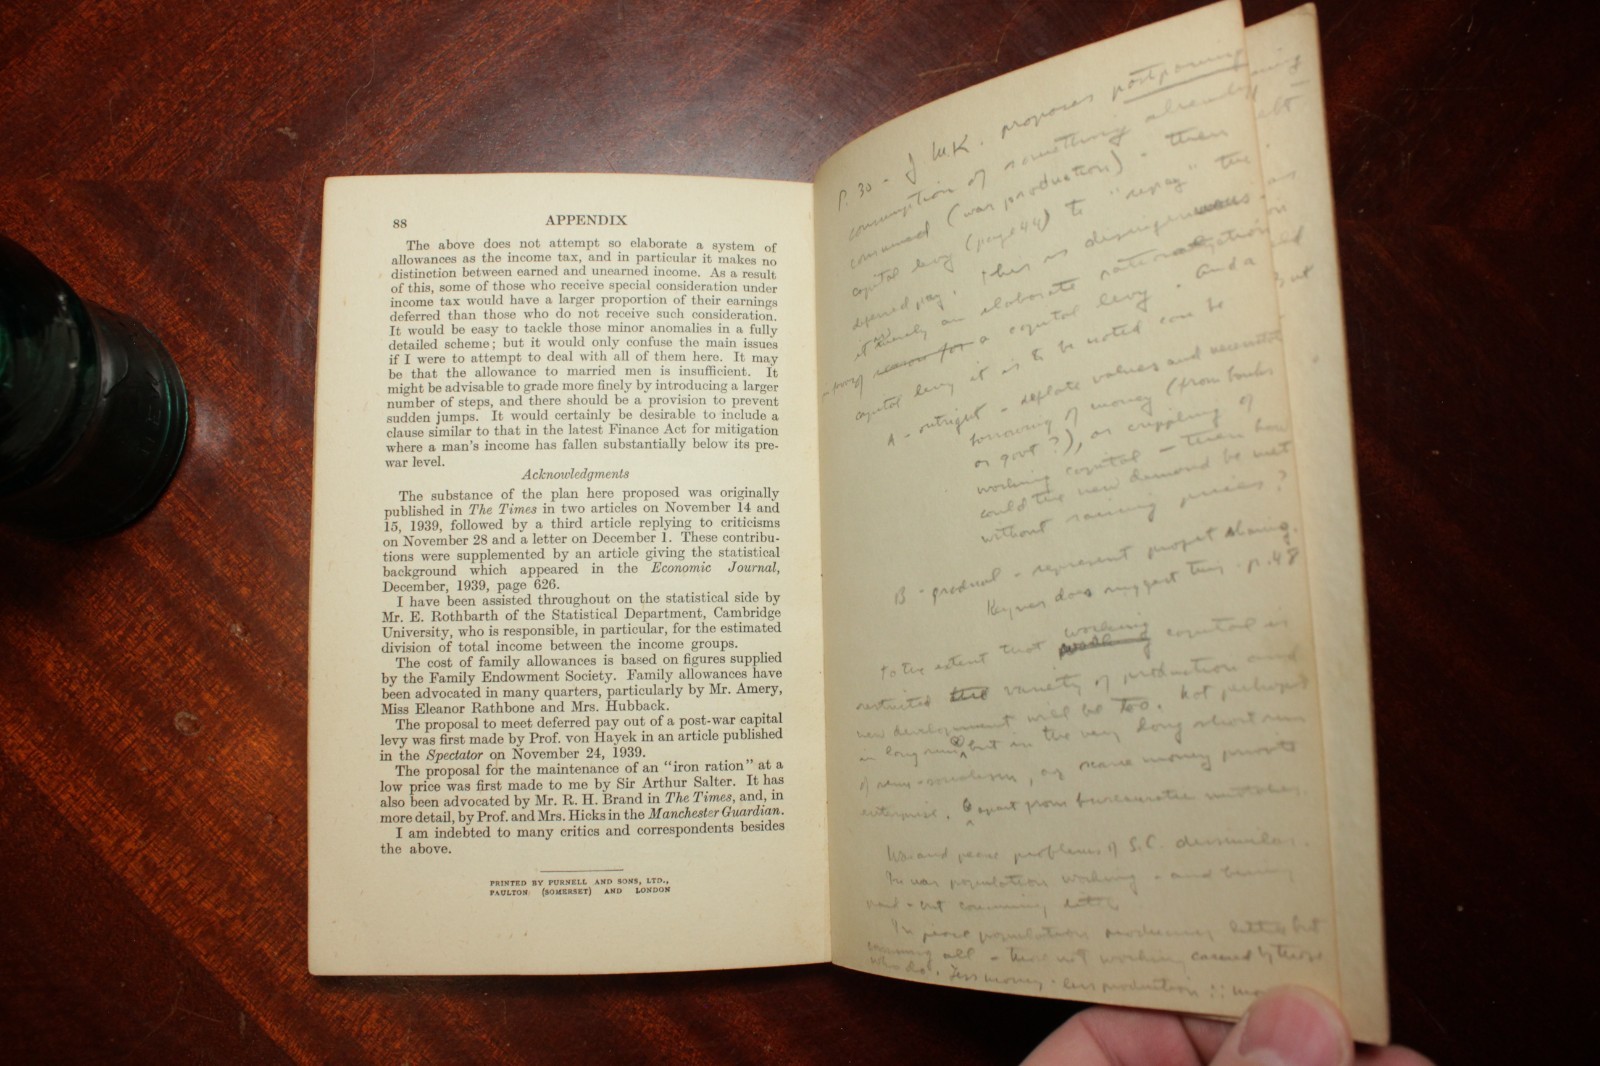 88 APPENDIX
The above does not attempt so elaborate a system of
allowances as the income tax, and in particular it makes no
distinction between earned and unearned income. As a result
of this, some of those who receive special consideration under
income tax would have a larger proportion of their earnings
deferred than those who do not receive such consideration.
It would be easy to tackle those minor anomalies in a fully
detailed scheme; but it would only confuse the main issues
if I were to attempt to deal with all of them here. It may
be that the allowance to married men is insufficient. It
might be advisable to grade more finely by introducing a larger
number of steps, and there should be a provision to prevent
sudden jumps. It would certainly be desirable to include a
clause similar to that in the latest Finance Act for mitigation
where a man's income has fallen substantially below its pre-
war level.
Acknowledgments
The substance of the plan here proposed was originally
published in The Times in two articles on November 14 and
15, 1939, followed by a third article replying to criticisms
on November 28 and a letter on December 1. These contribu-
tions were supplemented by an article giving the statistical
background which appeared in the Economic Journal,
December, 1939, page 626.
I have been assisted throughout on the statistical side by
Mr. E. Rothbarth of the Statistical Department, Cambridge
University, who is responsible, in particular, for the estimated
division of total income between the income groups.
The cost of family allowances is based on figures supplied
by the Family Endowment Society. Family allowances have
been advocated in many quarters, particularly by Mr. Amery,
Miss Eleanor Rathbone and Mrs. Hubback.
The proposal to meet deferred pay out of a post-war capital
levy was first made by Prof. von Hayek in an article published
in the Spectator on November 24, 1939.
The proposal for the maintenance of an "iron ration" at a
low price was first made to me by Sir Arthur Salter. It has
also been advocated by Mr. R. H. Brand in The Times, and, in
more detail, by Prof. and Mrs. Hicks in the Manchester Guardian.
I am indebted to many critics and correspondents besides
the above.
PRINTED BY PURNELL AND SONS, LTD.,
PAULTON (SOMERSET) AND LONDON
P. 30 - J M.K. proposes postponing
consumption of something already
consumed (war production) - then
capital levy (page 44) to "repay" the
deferred pay. this is disingenuous -
it is merely an elaborate rationalization
reason for a capital levy. And a
capital levy it is to be noted can be
A - outright - deflate values and necessitate
borrowing of money (from banks
or govt?), or crippling of
working capital - then how
could the new demand be met
without raising prices?
B - gradual - represent profit sharing.
Keynes does suggest this - p. 48
To the extent that working capital is
restricted the variety of production and
new development will be too. Not perhaps
in long run but in the very long short run
of semi-socialism, or scarce money private
enterprise, apart from bureaucratic mistakes.
War and peace problems of S.C. dissimilar.
In war population working - and being
paid - but consuming little
In peace population producing little but
consuming all - those not working by those
who do. Less money - less production